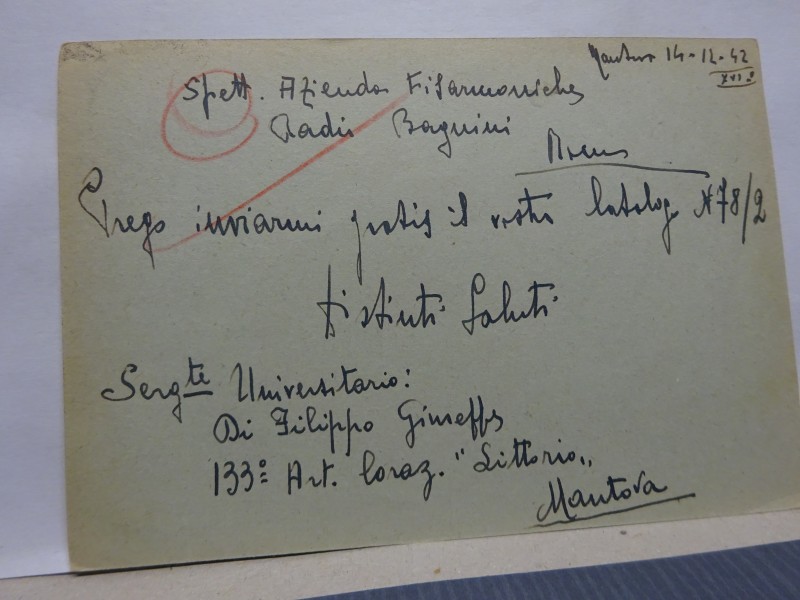 Mantova 14-12-42
XXI º
Spett. Azienda Fisarmoniche
Radio Bagnini
Roma
Prego inviarmi gratis il vostro Catalogo N 78/2
Distinti Saluti
Sergte Universitario:
Di Filippo Giuseppe
133º Art. Coraz. "Littorio"
Mantova